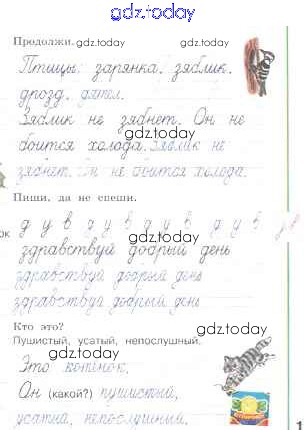 gdz.today
Продолжи. gdz.today gdz.today
Птицы: зарянка, зяблик,
дрозд, дятел.
Зяблик не зябнет. Он не
gdz.today
боится холода. Зяблик не
зябнет. Он не боится холода.
gdz.today
Пиши, да не спеши.
д у в д у в д у в д у в д у в
gdz.today
здравствуй добрый день
здравствуй добрый день
gdz.today
здравствуй добрый день
Кто это?
gdz.today
Пушистый, усатый, непослушный.
Это котёнок.
gdz.today
Он (какой?) пушистый,
gdz.today
усатый, непослушный.
1